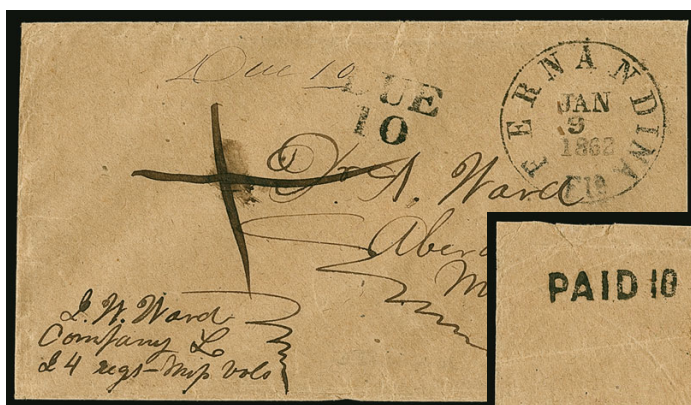 Due 10
DUE
10
FERNANDINA
JAN
9
1862
Fla
Dr A. Ward
Aber
M
PAID 10
L. W. Ward
Company L
24 regt-Miss vols